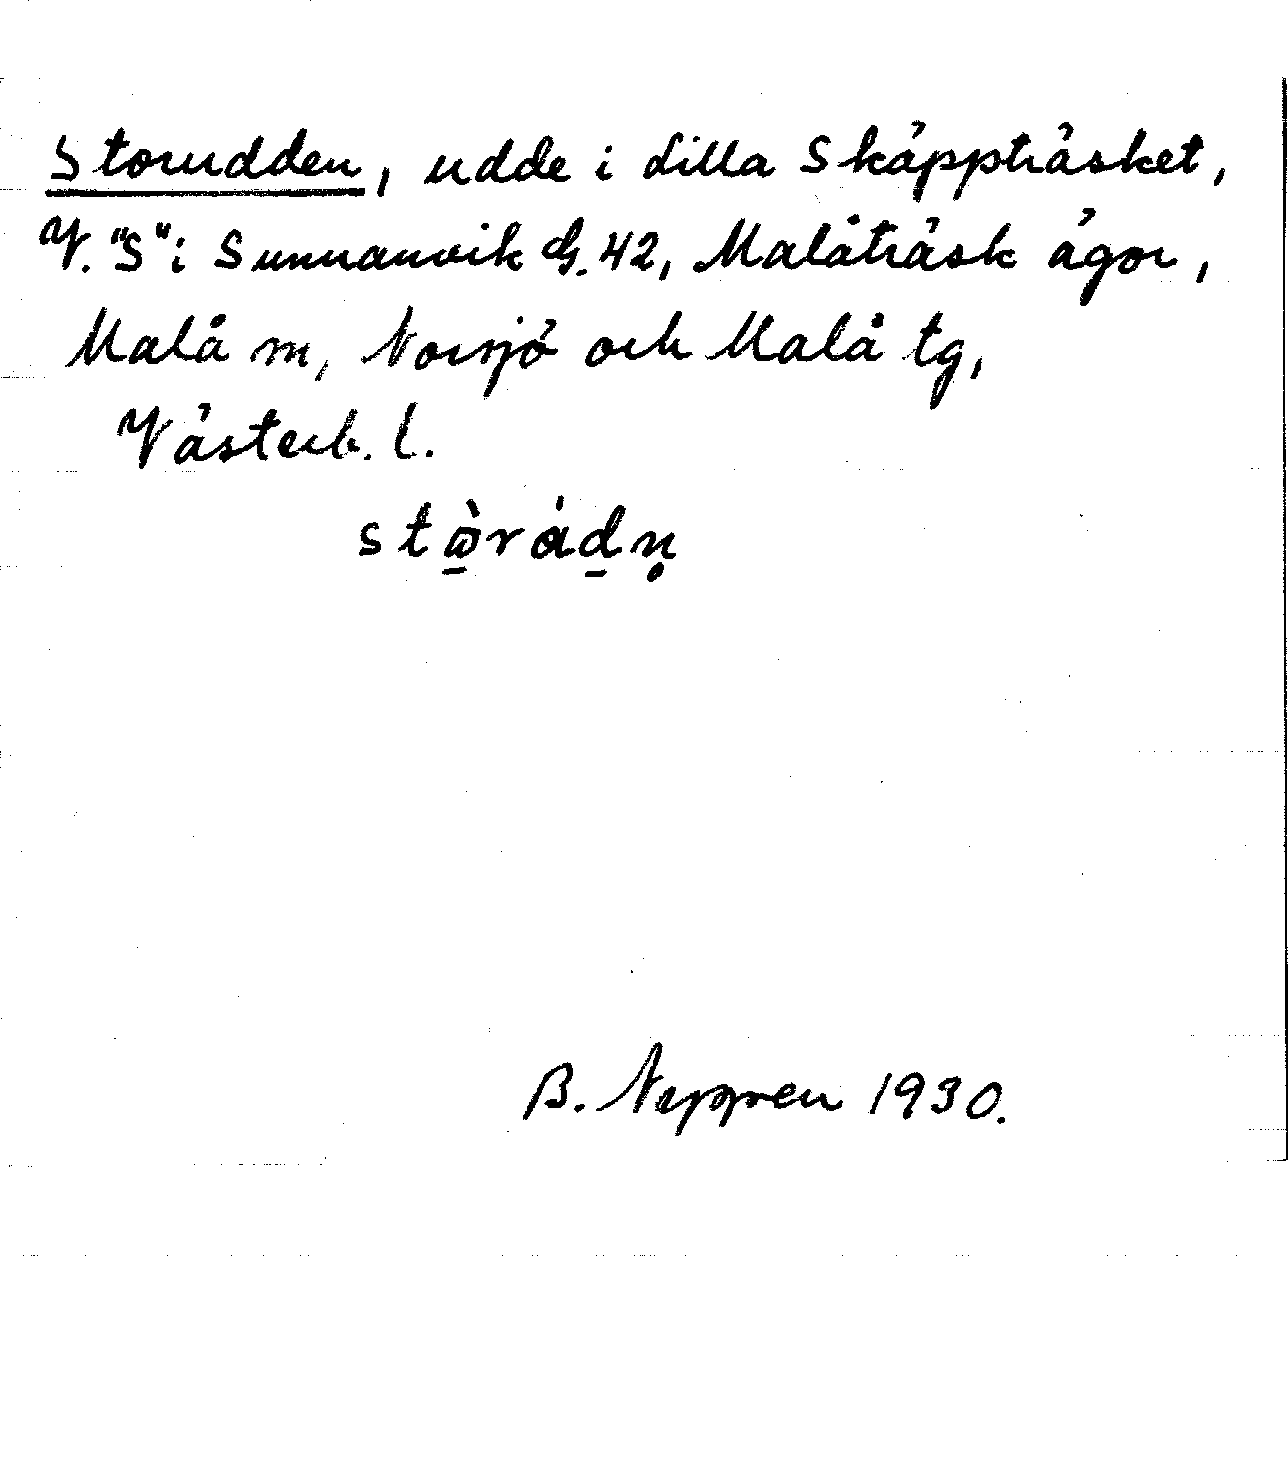 Storudden, udde i Lilla Skäppträsket,
V. "S" i Sunnanvik G. 42, Malåträsk ägor,
Malå m, Norsjö och Malå tg,
Västerb. l.
stὼ̲råd̲n̥
B. Nygren 1930.